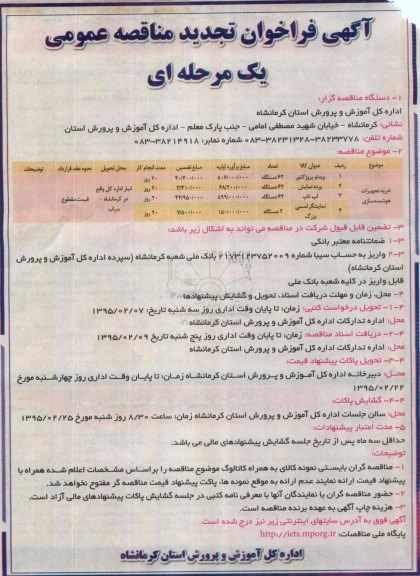 آگهی فراخوان تجدید مناقصه عمومی
یک مرحله ای
۱- دستگاه مناقصه گزار:
اداره کل آموزش و پرورش استان کرمانشاه
نشانی: کرمانشاه - خیابان شهید مصطفی امامی - جنب پارک معلم - اداره کل آموزش و پرورش استان
شماره تلفن: ۳۸۲۳۳۷۷۸-۳۸۲۳۱۳۲۸-۰۸۳ شماره نمابر: ۳۸۲۱۴۹۱۸-۰۸۳
۲- موضوع مناقصه:
موضوع ردیف عنوان کالا تعداد مبلغ برآورد اولیه مبلغ تضمین مدت انجام کار محل تحویل نحوه عقد قرارداد توضیحات
خرید تجهیزات هوشمندسازی
۱ ویدئو پروژکتور ۶۲ دستگاه ۲۰ روز
۲ پرده نمایش ۶۲ دستگاه ۲۰ روز
۳ لپ تاپ ۶۲ دستگاه ۲۰ روز
۴ نمایشگر لمسی بزرگ ۲ دستگاه ۱۵۰/۰۰۰/۰۰۰ ۲۰ روز
انبار اداره کل واقع در کرمانشاه - سراب
قیمت مقطوع
۳- تضمین قابل قبول شرکت در مناقصه می تواند به اشکال زیر باشد:
۳-۱ ضمانتنامه معتبر بانکی
۳-۲ واریز به حساب سیبا شماره ۲۱۷۳۱۲۳۷۵۲۰۰۹ بانک ملی شعبه کرمانشاه (سپرده اداره کل آموزش و پرورش
استان کرمانشاه)
قابل واریز در کلیه شعبه بانک ملی
۴- محل، زمان و مهلت دریافت اسناد، تحویل و گشایش پیشنهادها
۴-۱- تحویل درخواست کتبی: زمان: تا پایان وقت اداری روز سه شنبه تاریخ: ۱۳۹۵/۰۲/۰۷
محل: اداره تدارکات اداره کل آموزش و پرورش استان کرمانشاه
۴-۲- دریافت اسناد مناقصه: زمان: تا پایان وقت اداری روز پنج شنبه تاریخ ۱۳۹۵/۰۲/۰۹
محل: اداره تدارکات اداره کل آموزش و پرورش استان کرمانشاه
۴-۳- تحویل پاکات پیشنهاد قیمت:
محل: دبیرخانه اداره کل آموزش و پرورش استان کرمانشاه زمان: تا پایان وقت اداری روز چهارشنبه مورخ
۱۳۹۵/۰۲/۲۲
۴-۴- گشایش پاکات:
محل: سالن جلسات اداره کل آموزش و پرورش استان کرمانشاه زمان: ساعت ۸/۳۰ روز شنبه مورخ ۱۳۹۵/۰۲/۲۵
۵- مدت اعتبار پیشنهادات:
حداقل سه ماه پس از تاریخ جلسه گشایش پیشنهادهای مالی می باشد.
توضیحات:
۱- مناقصه گران بایستی نمونه کالای به همراه کاتالوگ موضوع مناقصه را براساس مشخصات اعلام شده همراه با
پیشنهاد قیمت ارائه نمایند عدم ارائه به موقع نمونه ها، پاکت پیشنهاد قیمت مناقصه گر مفتوح نخواهد شد.
۲- حضور مناقصه گران یا نمایندگان آنها با معرفی نامه کتبی در جلسه گشایش پاکات پیشنهادهای مالی آزاد است.
۳- هزینه چاپ آگهی به عهده برنده مناقصه است.
آگهی فوق به آدرس سایتهای اینترنتی زیر نیز درج شده است.
پایگاه ملی مناقصات: http://iets.mporg.ir
اداره کل آموزش و پرورش استان کرمانشاه